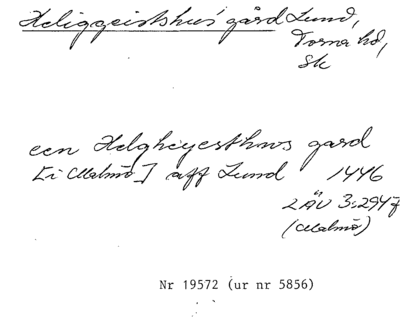 Heliggeistshus' gård Lund,
Torna hd,
Sk
een Helgheyesthws gard
[i Malmö] aff Lund 1446
LÄU 3:294 f
(Malmö)
Nr 19572 (ur nr 5856)